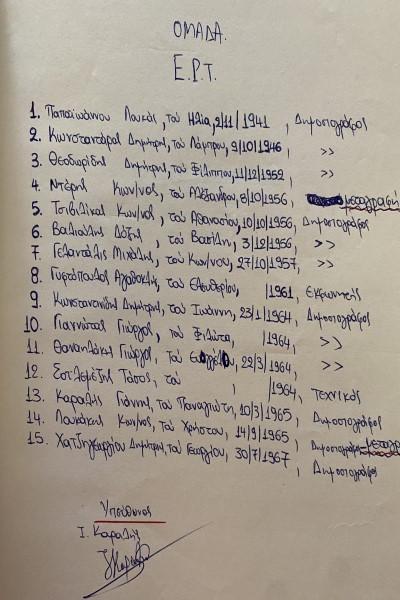 ΟΜΑΔΑ.
Ε.Ρ.Τ.
1. Παπαϊωάννου Λουκάς, του Ηλία, 2/11/1941, Δημοσιογράφος
2. Κωνσταντάρας Δημήτρης, του Λάμπρου, 9/10/1946, >>
3. Θεοδωρίδης Δημήτρης, του Φίλιππου, 11/12/1952, >>
4. Ντέρης Κων/νος, του Αλέξανδρου, 8/10/1956,
5. Τσιβιλίκας Κων/νος, του Αθανασίου, 10/10/1956, Δημοσιογράφος
6. Βασιλάδης Λάζης, του Βασίλη, 3/12/1956, >>
7. Γελαντάλις Μιχάλης, του Κων/νου, 27/10/1957, >>
8. Γυφτόπουλος Αγαθοκλής, του Ελευθερίου, /1961, Εκφωνητής
9. Κωνσταντινίδης Δημήτρης, του Ιωάννη, 23/1/1964, Δημοσιογράφος
10. Γιαννώτας Γιώργος, του Φιλώτα, /1964, >>
11. Θαναηλάκης Γιώργος, του 22/3/1964, >>
12. Τάσος, του , /1964, Τεχνικός
13. Καραλής Γιάννης, του Παναγιώτη, 10/3/1965, Δημοσιογράφος
14. Λουκάκης Κων/νος, του Χρήστου, 14/9/1965,
15. Χατζηγεωργίου Δημήτρης, του Γεωργίου, 30/7/1967, Δημοσιογράφος
Υπεύθυνος
Ι. Καραλής